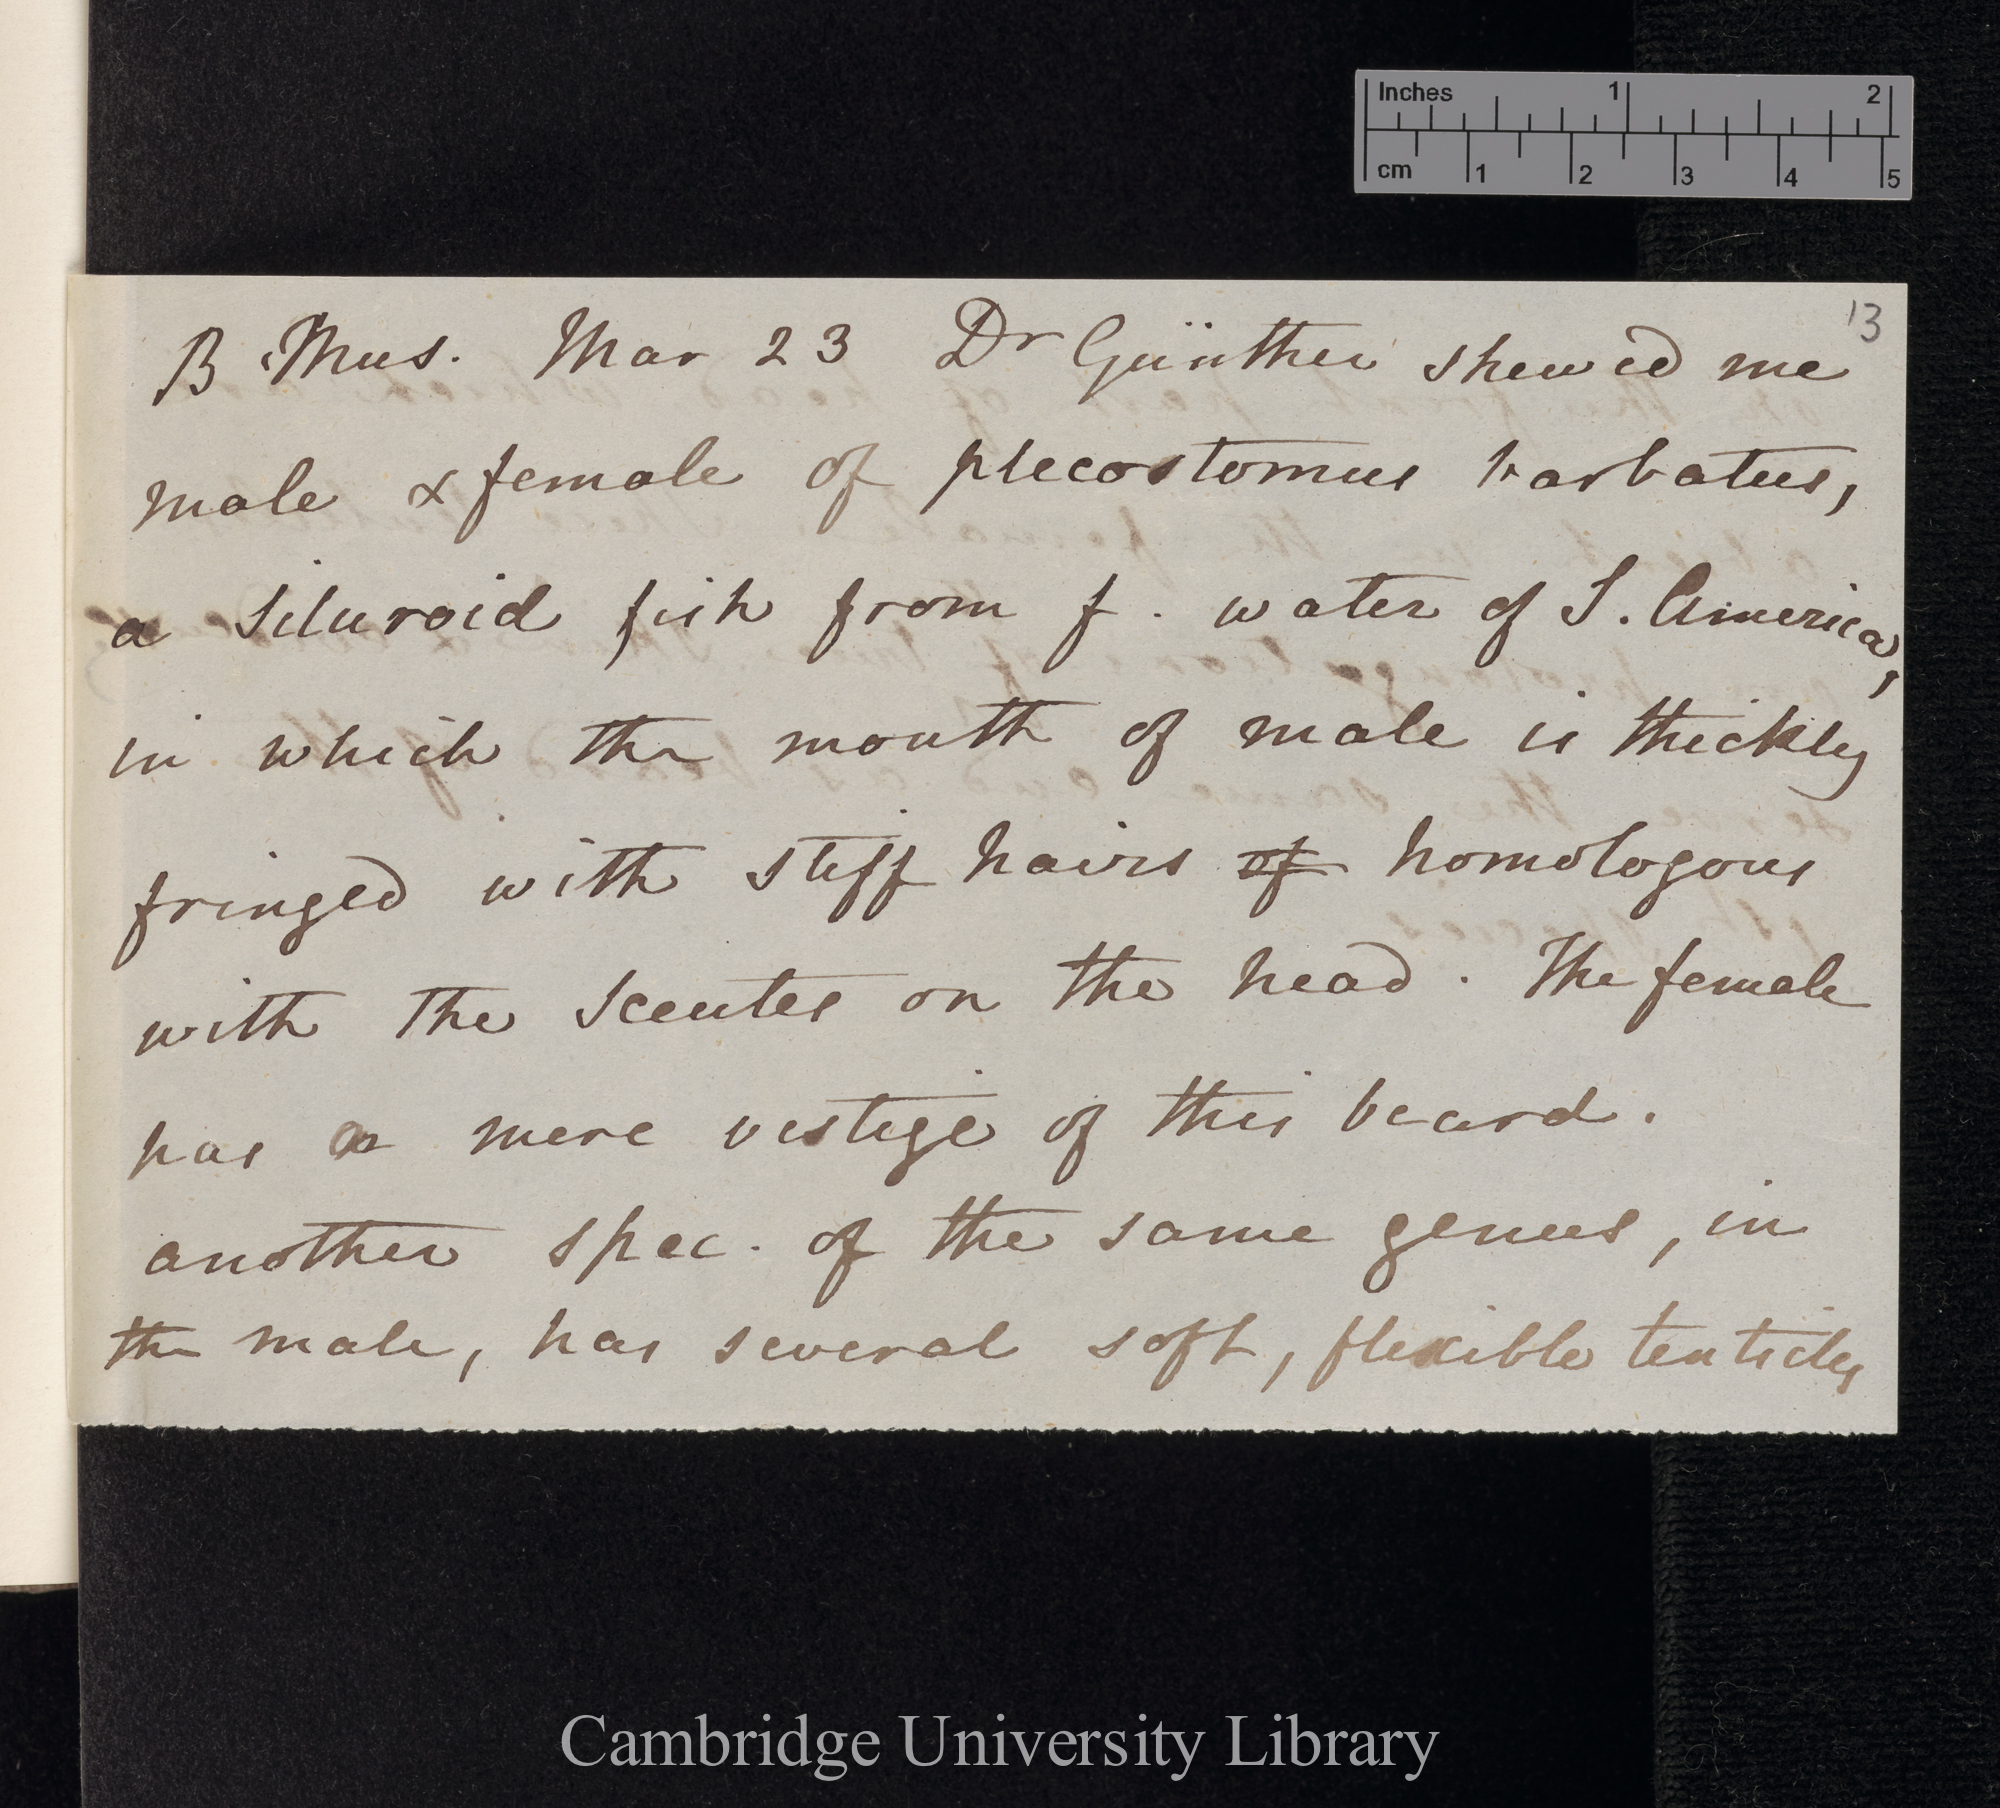 Inches 1 2
cm 1 2 3 4 5
13
B. Mus. Mar 23 Dr Günther shewed me
male & female of plecostomus barbatus,
a Siluroid fish from f. water of S. America,
in which the mouth of male is thickly
fringed with stiff hairs of homologous
with the scutes on the head. The female
has a mere vestige of this beard.
another spec. of the same genus, in
the male, has several soft, flexible tenticles
Cambridge University Library